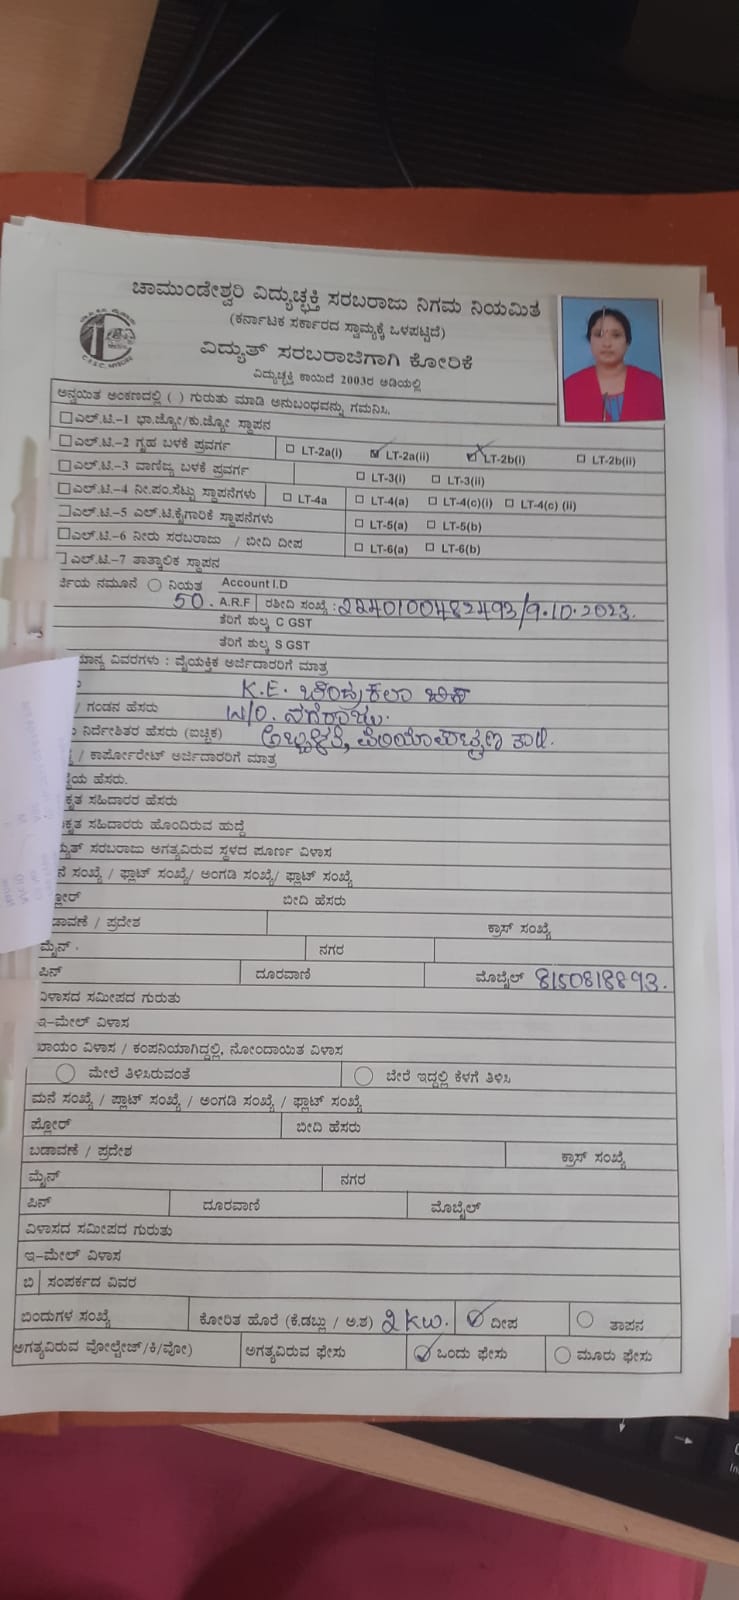 ಚಾಮುಂಡೇಶ್ವರಿ ವಿದ್ಯುಚ್ಛಕ್ತಿ ಸರಬರಾಜು ನಿಗಮ ನಿಯಮಿತ
(ಕರ್ನಾಟಕ ಸರ್ಕಾರದ ಸ್ವಾಮ್ಯಕ್ಕೆ ಒಳಪಟ್ಟಿದೆ)
ವಿದ್ಯುತ್ ಸರಬರಾಜಿಗಾಗಿ ಕೋರಿಕೆ
ವಿದ್ಯುಚ್ಛಕ್ತಿ ಕಾಯಿದೆ 2003ರ ಅಡಿಯಲ್ಲಿ
ಅನ್ವಯಿತ ಅಂಕಣದಲ್ಲಿ ( ) ಗುರುತು ಮಾಡಿ ಅನುಬಂಧವನ್ನು ಗಮನಿಸಿ.
ಎಲ್.ಟಿ.-1 ಭಾ.ಜ್ಯೋ/ಕು.ಜ್ಯೋ ಸ್ಥಾಪನ
ಎಲ್.ಟಿ.-2 ಗೃಹ ಬಳಕೆ ಪ್ರವರ್ಗ LT-2a(i) LT-2a(ii) LT-2b(i) LT-2b(ii)
ಎಲ್.ಟಿ.-3 ವಾಣಿಜ್ಯ ಬಳಕೆ ಪ್ರವರ್ಗ LT-3(i) LT-3(ii)
ಎಲ್.ಟಿ.-4 ನೀ.ಪಂ.ಸೆಟ್ಟು ಸ್ಥಾಪನೆಗಳು LT-4a LT-4(a) LT-4(c)(i) LT-4(c) (ii)
ಎಲ್.ಟಿ.-5 ಎಲ್.ಟಿ.ಕೈಗಾರಿಕೆ ಸ್ಥಾಪನೆಗಳು LT-5(a) LT-5(b)
ಎಲ್.ಟಿ.-6 ನೀರು ಸರಬರಾಜು / ಬೀದಿ ದೀಪ LT-6(a) LT-6(b)
ಎಲ್.ಟಿ.-7 ತಾತ್ಕಾಲಿಕ ಸ್ಥಾಪನ
ರ್ಜಿಯ ನಮೂನೆ ನಿಯತ Account I.D
50. A.R.F ರಶೀದಿ ಸಂಖ್ಯೆ : 2240100482493/9.10.2023.
ತೆರಿಗೆ ಶುಲ್ಕ C GST
ತೆರಿಗೆ ಶುಲ್ಕ S GST
ಮಾನ್ಯ ವಿವರಗಳು : ವೈಯಕ್ತಿಕ ಅರ್ಜಿದಾರರಿಗೆ ಮಾತ್ರ
K.E. ಚಂದ್ರಕಲಾ
/ ಗಂಡನ ಹೆಸರು W/O. ನಾಗರಾಜು.
ನಿರ್ದೇಶಿತರ ಹೆಸರು (ಐಚ್ಛಿಕ)
/ ಕಾರ್ಪೋರೇಟ್ ಅರ್ಜಿದಾರರಿಗೆ ಮಾತ್ರ
ಯ ಹೆಸರು.
ಕೃತ ಸಹಿದಾರರ ಹೆಸರು
ಕೃತ ಸಹಿದಾರರು ಹೊಂದಿರುವ ಹುದ್ದೆ
ಯುತ್ ಸರಬರಾಜು ಅಗತ್ಯವಿರುವ ಸ್ಥಳದ ಪೂರ್ಣ ವಿಳಾಸ
ನೆ ಸಂಖ್ಯೆ / ಫ್ಲಾಟ್ ಸಂಖ್ಯೆ/ ಅಂಗಡಿ ಸಂಖ್ಯೆ/ ಫ್ಲಾಟ್ ಸಂಖ್ಯೆ
ಲೋರ್ ಬೀದಿ ಹೆಸರು
ಡಾವಣೆ / ಪ್ರದೇಶ ಕ್ರಾಸ್ ಸಂಖ್ಯೆ
ಮೈನ್ . ನಗರ
ಪಿನ್ ದೂರವಾಣಿ ಮೊಬೈಲ್ 8150818893.
ವಿಳಾಸದ ಸಮೀಪದ ಗುರುತು
ಇ-ಮೇಲ್ ವಿಳಾಸ
ಖಾಯಂ ವಿಳಾಸ / ಕಂಪನಿಯಾಗಿದ್ದಲ್ಲಿ, ನೋಂದಾಯಿತ ವಿಳಾಸ
ಮೇಲೆ ತಿಳಿಸಿರುವಂತೆ ಬೇರೆ ಇದ್ದಲ್ಲಿ ಕೆಳಗೆ ತಿಳಿಸಿ
ಮನೆ ಸಂಖ್ಯೆ / ಪ್ಲಾಟ್ ಸಂಖ್ಯೆ / ಅಂಗಡಿ ಸಂಖ್ಯೆ / ಫ್ಲಾಟ್ ಸಂಖ್ಯೆ
ಪ್ಲೋರ್ ಬೀದಿ ಹೆಸರು
ಬಡಾವಣೆ / ಪ್ರದೇಶ ಕ್ರಾಸ್ ಸಂಖ್ಯೆ
ಮೈನ್ ನಗರ
ಪಿನ್ ದೂರವಾಣಿ ಮೊಬೈಲ್
ವಿಳಾಸದ ಸಮೀಪದ ಗುರುತು
ಇ-ಮೇಲ್ ವಿಳಾಸ
ಬಿ ಸಂಪರ್ಕದ ವಿವರ
ಬಿಂದುಗಳ ಸಂಖ್ಯೆ ಕೋರಿತ ಹೊರೆ (ಕಿ.ಡಬ್ಲು / ಅ.ಶ) 2 KW. ದೀಪ ತಾಪನ
ಅಗತ್ಯವಿರುವ ವೋಲ್ಟೇಜ್/ಕಿ/ವೋ) ಅಗತ್ಯವಿರುವ ಫೇಸು ಒಂದು ಫೇಸು ಮೂರು ಫೇಸು